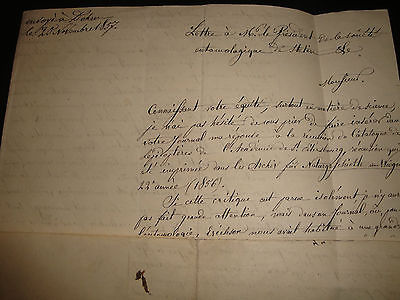 envoyé à Dohrn
le 28 Novembre 1857.
Lettre à Mr. le Président de la société
entomologique de Stettin
Monsieur,
Connaissant votre équité, surtout en matière de science,
je n'ai pas hésité de vous prier de faire insérer dans
votre Journal ma réponse à la récension du Catalogue des
Lépidoptères de l'Académie de St. Petersbourg, récension qui
est imprimée dans les Archiv für Naturgeschichte
23e année (1856).
Si cette critique eut parue isolément je n'y aurai
pas fait grande attention, mais dans un Journal, où, pour
l'entomologie, Erichson nous avait habitué à une grande